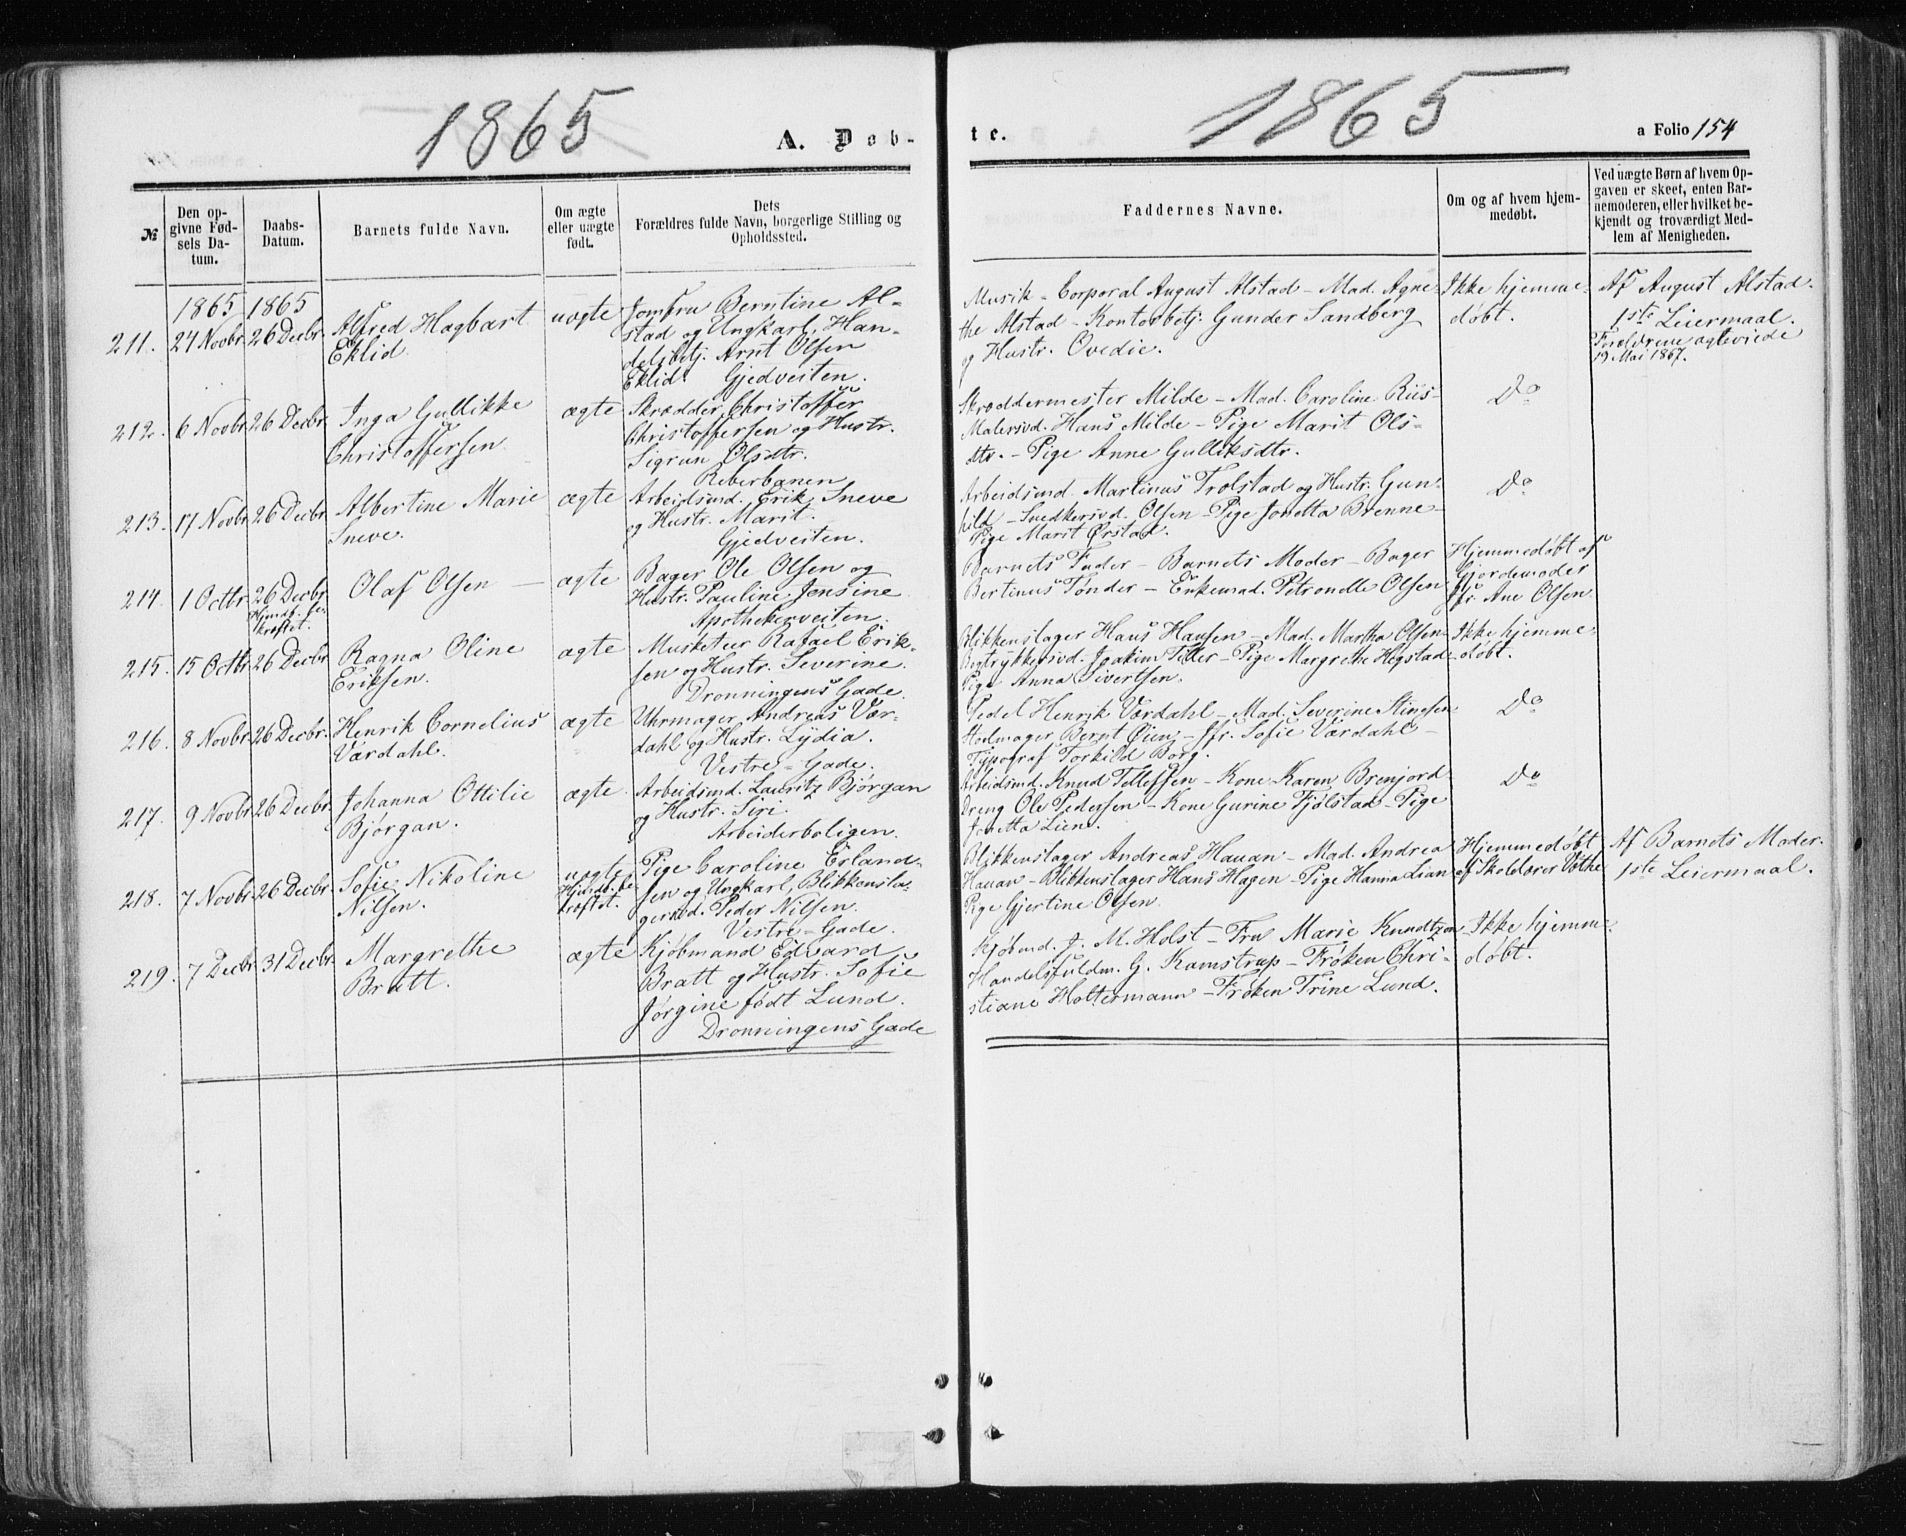 1865
A. Døb-
№
Den op-
givne Fød-
sels Da-
tum.
Daabs-
Datum.
Barnets fulde Navn.
Om ægte
eller uægte
født.
Dets
Forældres fulde Navn, borgerlige Stilling og
Opholdssted.
1865 1865
211. 24 Novbr. 26 Decbr. Alfred Hagbart
Eklid.
uægte
Jomfru Berntine Al-
stad og Ungkarl, Han-
delsbetj. Arnt Olsen
Eklid. Gjedveiten.
212. 6 Novbr. 26 Decbr. Inga Gullikke
Christoffersen.
ægte
Skrædder Christoffer
Christoffersen og Hustr.
Sigrun Olsdtr.
Reberbanen
213. 17 Novbr. 26 Decbr. Albertine Marie
Sneve.
ægte
Arbeidsmd. Erik Sneve
og Hustr. Marit.
Gjedveiten.
214. 1 Octbr. 26 Decbr.
Hjmdb. be-
kræftet.
Olaf Olsen —
ægte
Bager Ole Olsen og
Hustr. Pauline Jensine
Apothekerveiten.
215. 15 Octbr. 26 Decbr. Ragna Oline
Eriksen.
ægte
Musketeer Rafael Erik-
sen og Hustr. Severine.
Dronningens Gade.
216. 8 Novbr. 26 Decbr. Henrik Cornelius
Værdahl.
ægte
Uhrmager Andreas Vær-
dahl og Hustr. Lydia.
Vestre-Gade.
217. 9 Novbr. 26 Decbr. Johanna Ottilie
Bjørgan.
ægte
Arbeidsmd. Lauritz Bjørgan
og Hustr. Siri
Arbeiderboligen.
218. 7 Novbr. 26 Decbr. Sofie Nikoline
Nilsen.
uægte
Hjmdb. be-
kræftet.
Pige Caroline Erland-
sen og Ungkarl, Blikkensla-
gersvd. Peder Nilsen.
Vestre-Gade.
219. 7 Decbr. 31 Decbr. Margrethe
Bratt.
ægte
Kjøbmand Edvard
Bratt og Hustr. Sofie
Jørgine født Lund.
Dronningens Gade
1865
te.
a Folio 154
Faddernes Navne.
Om og af hvem hjem-
medøbt.
Ved uægte Børn af hvem Op-
gaven er skeet, enten Bar-
nemoderen, eller hvilket be-
kjendt og troværdigt Med-
lem af Menigheden.
Musik-Corporal August Alstad - Mad. Agne-
the Alstad - Kontorbetj. Gunder Sandberg
og Hustr. Ovedie.
Ikke hjemme-
døbt.
Af August Alstad.
1ste Leiermaal.
Forældrene ægteviede
19 Mai 1867.
Skræddermester Milde - Mad. Caroline Riis-
Malersvd. Hans Milde - Pige Marit Ols-
dtr. - Pige Anne Gulliksdtr.
Do
Arbeidsmd. Martinus Trolstad og Hustr. Gun-
hild - Snedkersvd. Olsen - Pige Jonetta Brenne -
Pige Marit Ørstad.
Do
Barnets Fader - Barnets Moder - Bager
Bertinus Tønder - Enkemad. Petronelle Olsen
Hjemmedøbt af
Gjordemoder
Jfr. Ane Olsen.
Blikkenslager Hans Hansen - Mad. Martha Olsen
Bogtrykkersvd. Joakim Teller - Pige Margrethe Hegstad -
Pige Anna Sivertsen.
Ikke hjemme-
døbt.
Pedel Henrik Værdahl - Mad. Severine Stinesen
Stolmager Bernt Øien - Jfr. Sofie Værdahl -
Typograf Torkild Borg.
Do
Arbeidsmd. Knud Tellefsen - Kone Karen Brenjord
Dreng Ole Pedersen - Kone Gurine Fjølstad - Pige
Jonetta Lien.
Do
Blikkenslager Andreas Hauan - Mad. Andrea
Hauan - Blikkenslager Hans Hagen - Pige Hanna Lian
Pige Gjertine Olsen.
Hjemmedøbt
af Skolelærer Vithe
Af Barnets Moder.
1ste Leiermaal.
Kjøbmd. J. M. Holst - Fru Marie Knudtzon
Handelsfuldm. G. Kamstrup - Frøken Chri-
stiane Holtermann - Frøken Trine Lund.
Ikke hjemme-
døbt.